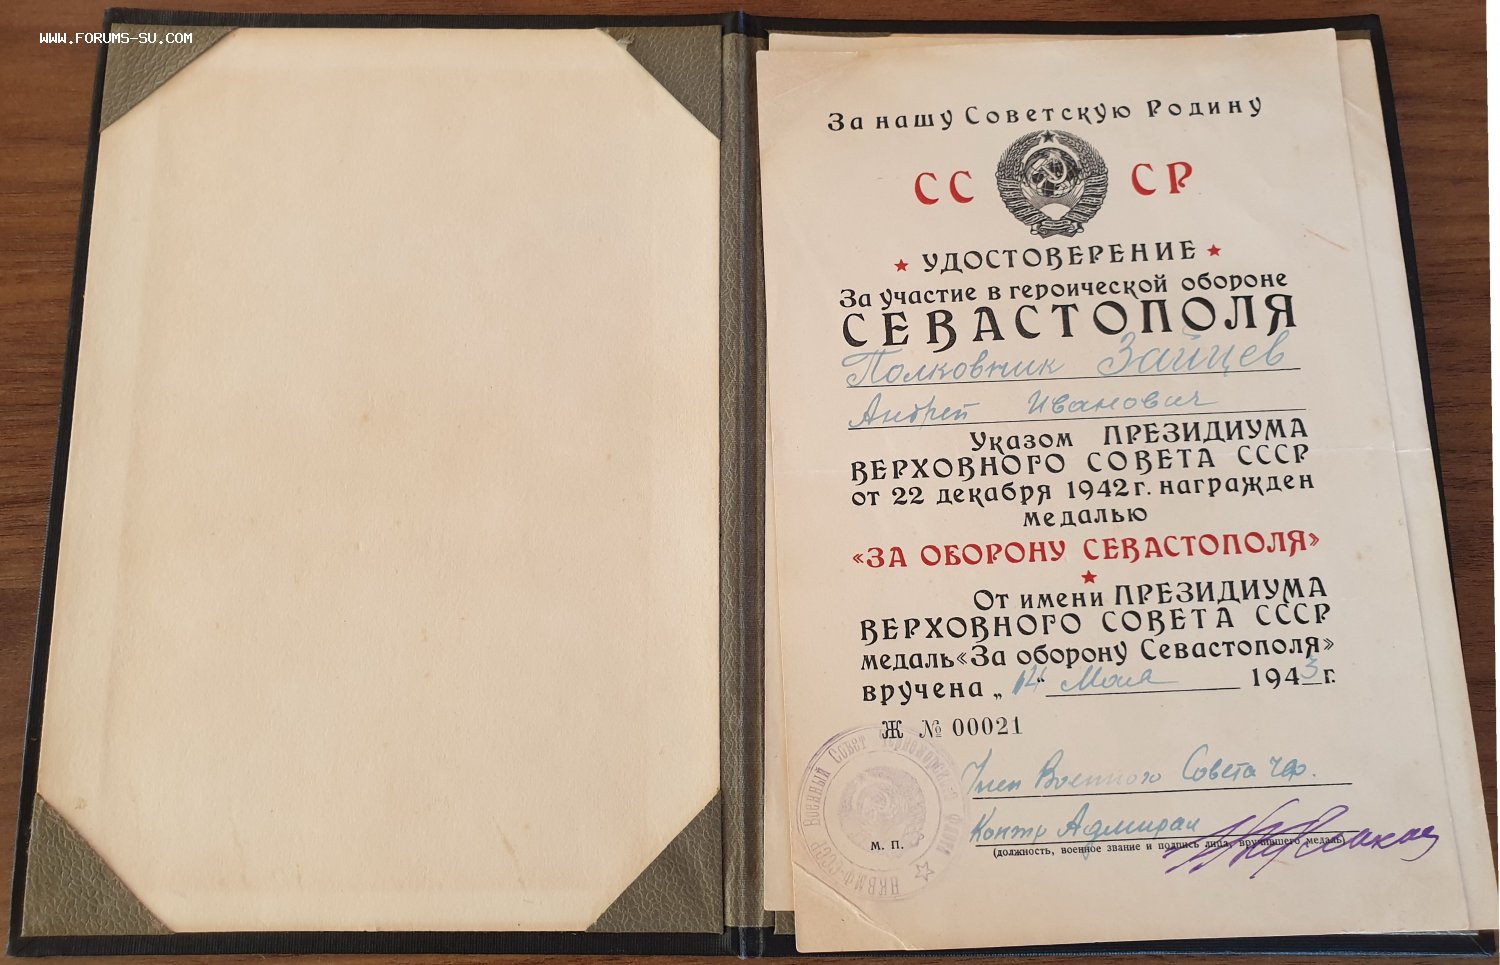 WWW.FORUMS-SU.COM
За нашу Советскую Родину
СС СР
УДОСТОВЕРЕНИЕ
За участие в героической обороне
СЕВАСТОПОЛЯ
Полковник Зайцев
Андрей Иванович
Указом ПРЕЗИДИУМА
ВЕРХОВНОГО СОВЕТА СССР
от 22 декабря 1942 г. награжден
медалью
«ЗА ОБОРОНУ СЕВАСТОПОЛЯ»
От имени ПРЕЗИДИУМА
ВЕРХОВНОГО СОВЕТА СССР
медаль «За оборону Севастополя»
вручена „14" Мая 1943 г.
Ж № 00021
Член Военного Совета ЧФ.
Контр Адмирал
М. П.
(должность, военное звание и подпись лица, вручившего медаль)
НКВМФ-СССР Военный Совет Черноморского флота